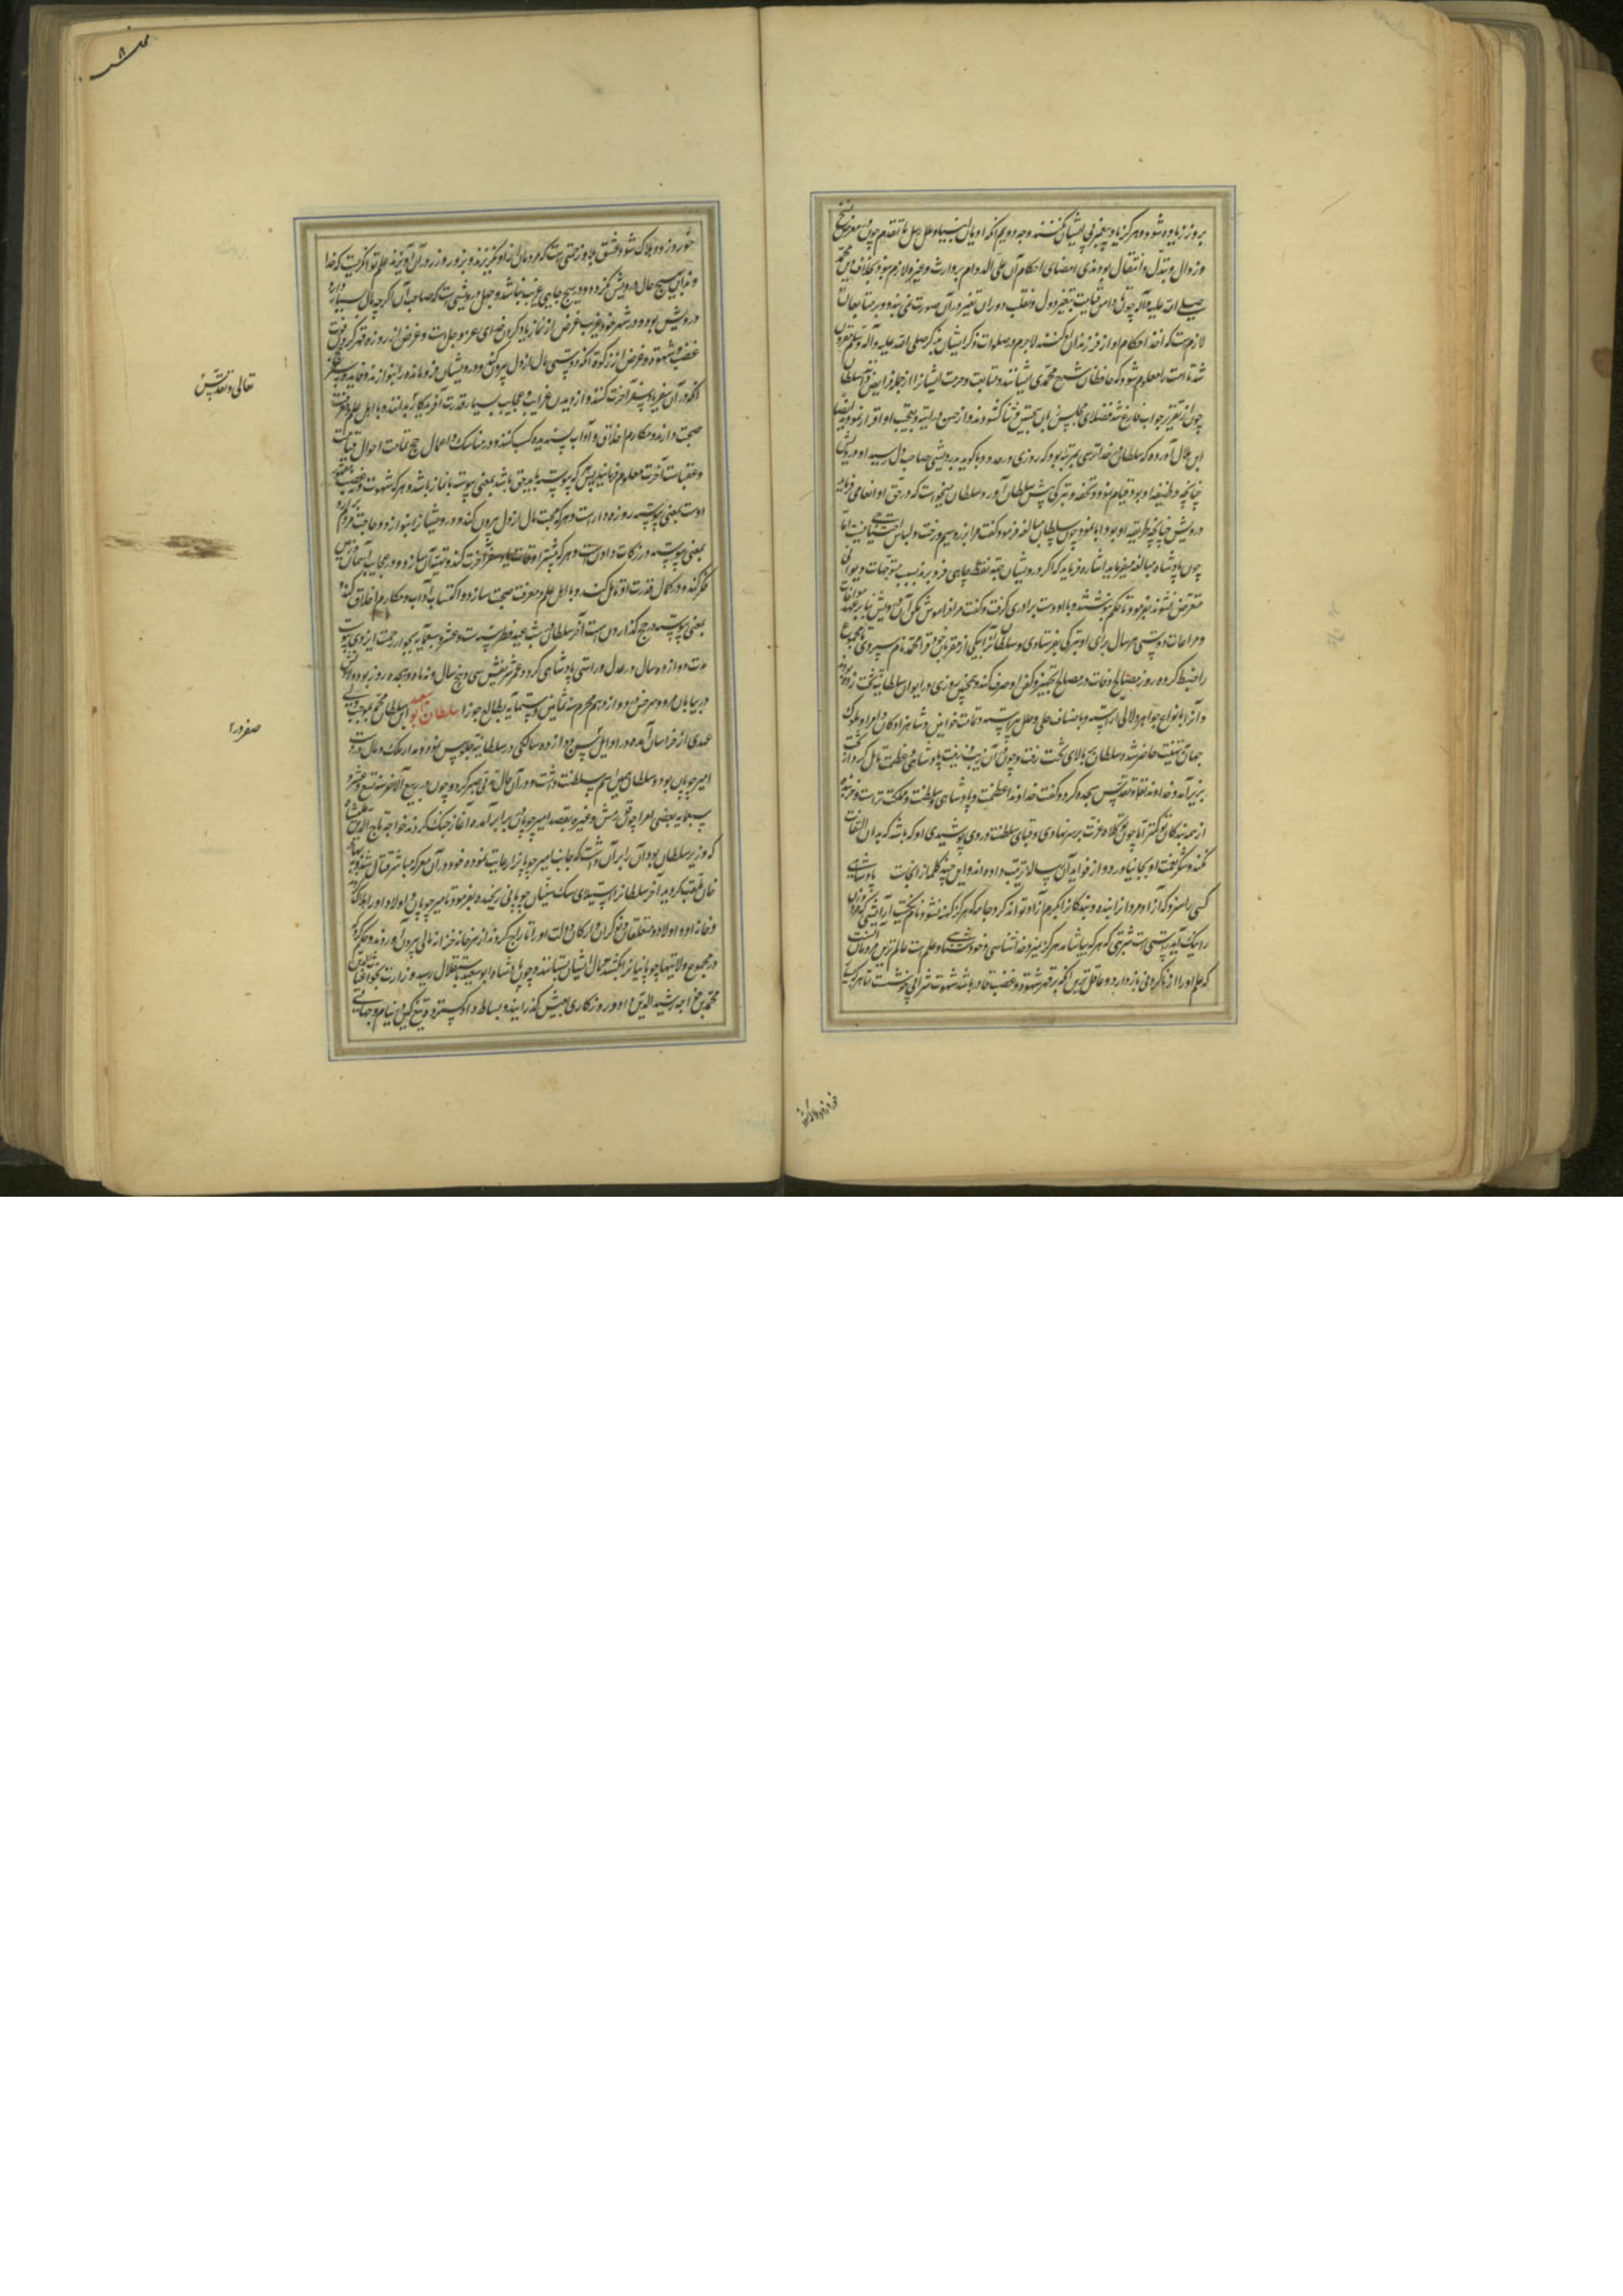 بروز زیاده شود و هرگز یاد پیغمبر پیشیان نکنند وجه دویم آنکه ادیان انبیا و ملل رسل ما تقدم چون معرض نسخ
و زوال و تبدل و انتقال بودندی امضای احکام آن علی الدوام بر وارث و غیره لازم نبود بخلاف دین محمد
صلی الله علیه و آله چون دامن قیامت بتغیر دول و تقلب دوران تغیر در آن صورت نمی بندد و بر متابعان
لازمست که اخذ احکام او از فرزندان او کنند لاجرم در صلوات ذکر ایشان بذکر صلی الله علیه و آله و سلم مقرون
شد تا امت را معلوم شود که حافظان شرع محمدی ایشانند و متابعت و حرمت ایشانرا از جمله فرایض
چون از تقریر جواب فارغ شد فضلای مجلس زبان بتحسین و ثنا گشودند و از حسن
ابن هلال آورده که سلطان در خداترسی بمرتبه بود که روزی در حدود باکویه بدرویشی صاحب دل رسید او درویشی
چنانچه وظیفه او بود قیام نمود و تحفه و تبرکی پیش سلطان آورد سلطان میخواست که در حق او انعامی فرماید
درویش چنانچه طریقه او بود ابا نمود چون سلطان مبالغه فرمود گفت مرا بزر و سیم و رخت و لباس احتیاجی نیست اما
چون پادشاه مبالغه میفرماید اشاره فرماید که اگر درویشان جهة نفط چاهی فرو برند بسبب متوجهات دیوانی
متعرض نشوند بفرمود تا حکم نوشتند و با او دست برادری گرفت و گفت مرا فراموش مکن آن درویش بنا بر عهد
و مراعات دوستی هر سال برای او تبرکی بفرستادی و سلطان آنرا بیکی از مقربان خود قرا محمد نام سپردی تا مجموع
را ضبط کرده روز وفات در مصالح تجهیز و تکفین او صرف کند و همچنین روزی در ایوان سلطانیه تخت زده بودند
و آنرا بانواع جواهر و لآلی آراسته و باصناف حلی و حلل پیراسته و تمامت خواتین و شاهزادگان و امرا و ملوک
جهان تهنیت حاضر شده سلطان بر بالای تخت رفت و چون آن زیب و زینت پادشاهی و عظمت تامل کرد از تخت
بزیر آمد و خداوند تعالی و تقدس سجده کرد و گفت خداوندا عظمت و پادشاهی و سلطنت و مملکت تراست و من بنده
از همه بندگان تو کمتر اما چون تو کلاه عزت بر سر نهادی و قبای سلطنت در وی پوشیدی او که باشد که بدان التفات
نکند و شکر نعمت او بجا نیاورد و از فواید آن رساله ترتیب داده اند و این چند کلمه از آنجاست پادشاهی
کسی را سزد که آزاد مردانرا بنده و بندگانرا بکرم آزاد تواند کرد جامه که هرگز کهنه نشود نام نیکست آرایشی که همه روز
را نیک آید راستی است شربتی که هرکه بیاشامد هرگز نمیرد خداشناسی و خودشناسی و علم است عالم ترین مردمان آنست
که علم او را از ناکردنی باز دارد و عاقل ترین آنکه بر قهر شهوت و غضب قادر باشد شهوت شرابی خوشست تا هر که
خورد زود هلاک شود عشق بلا و زحمتی است که مردمان از او نگریزند و بزور و زر در آن آویزند علم توانگریست که خداوند
آن بهیچ حال درویش نگردد و در هیچ جایی غریب نباشد و جهل درویشی است که صاحب آن اگرچه مال بسیار دارد
درویش بود و در شهر خود غریب غرض از نماز یاد کردن خدای عز و جل است و غرض از روزه قهر کردن قوت
غضب و شهوت و غرض از زکوة آنکه دوستی مال از دل بیرون کنی و درویشان فرومانده را بنوازند
آنکه در آن سفر یاد سفر آخرت کنند و از دیدن غرایب و عجایب بسیار قدرت آفریدگار بدانند و با اهل علم و معرفت
صحبت دارند و مکارم اخلاق و آداب پسندیده کسب کنند و در مناسک و اعمال حج تمامت احوال قیامت
و عقبات آخرت معلوم فرمایند پس هر که پیوسته با یاد حق باشد بمعنی پیوسته با نماز باشد و هر که شهوت و غضب مقهور
اوست بمعنی پیوسته روزه دار است و هر که محبت مال از دل بیرون کند و درویشان را بنوازد و حاجت مردم برآورد
بمعنی پیوسته در زکات دادن است و هر که بیشتر اوقات یاد سفر آخرت کند و تهیه آن سازد و در عجایب آسمان و زمین
فکر کند و در کمال قدرت او تامل کند و با اهل علم و معرفت صحبت سازد و اکتساب آداب و مکارم اخلاق کند
بمعنی پیوسته در حج گذاردن است آخر سلطان در شب عید فطر سنه ست و عشر و سبعمایه بجوار رحمت ایزدی پیوست
مدت دوازده سال در عدل و راستی پادشاهی کرد و عمر شریفش سی و پنج سال و نه ماه و هجده روز بود
در بیابان مرو و سرخس دوازدهم محرم سنه ثمانین و ستمایه بطالع جوزا سلطان ابو سعید ابن سلطان محمد بموجب ولی
عهدی از خراسان آمده در اوایل سن دوازده سالگی در سلطانیه جلوس نمود و مدار ملک و مال در دست
امیر چوپان بود و سلطان همین اسم سلطنت داشت و در آن حال مدتی صبر کرد و چون در ربیع الآخر سنه تسع عشر و
سبعمایه بعضی امرا چون قورمش و غیره بقصد امیر چوپان برابر آمده آغاز جنگ کردند خواجه تاج الدین علیشاه
که وزیر سلطان بود آن را بر آن داشت که جانب امیر چوپانرا رعایت نموده خود در آن معرکه مباشر قتال شد و بهادر
خان لقب گردید آخر سلطان از استیلای سگ منشان چوپانی رنجیده بفرمود تا امیر چوپان و اولاد او را هلاک کردند
و خانه او و اولاد و متعلقان و نوکران و ارکان دولت او را تاراج کردند از هر خانه خزانه مالی بیرون آوردند و حکم کرد که
در مجموع ولایتها چوپانیانرا بکشند و مال ایشان بستانند و چون پادشاه ابو سعید باستقلال رسید وزارت بخواجه غیاث الدین
محمد بن خواجه رشید الدین داد و روزگاری بعیش گذرانید و بساط داد گسترد و تیغ کین در نیام
تعالی و تقدس
صفر ورا